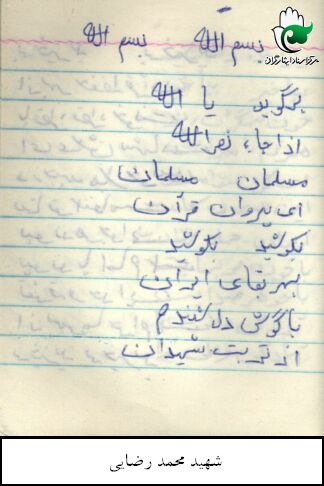 مرکز اسناد ایثارگران
بسم الله بسم الله
بگوید یا الله
اذا جاء نصرالله
مسلمان مسلمان
ای پیروان قرآن
بکوشید بکوشید
بهر بقای ایران
با گوش دل شنیدم
از تربت شهیدان
شهید محمد رضایی